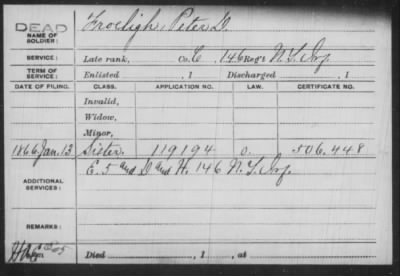 DEAD
NAME OF SOLDIER: Froeligh, Peter D.
SERVICE: Late rank, Co. C, 146 Reg't N.Y. Inf.
TERM OF SERVICE: Enlisted , 1 Discharged , 1
DATE OF FILING. CLASS. APPLICATION NO. LAW. CERTIFICATE NO.
Invalid,
Widow,
Minor,
1866 Jan. 13 Sister. 119194 0. 506,448
ADDITIONAL SERVICES: E. 5 and D and H. 146 N.Y. Inf.
REMARKS:
Died , 1 , at